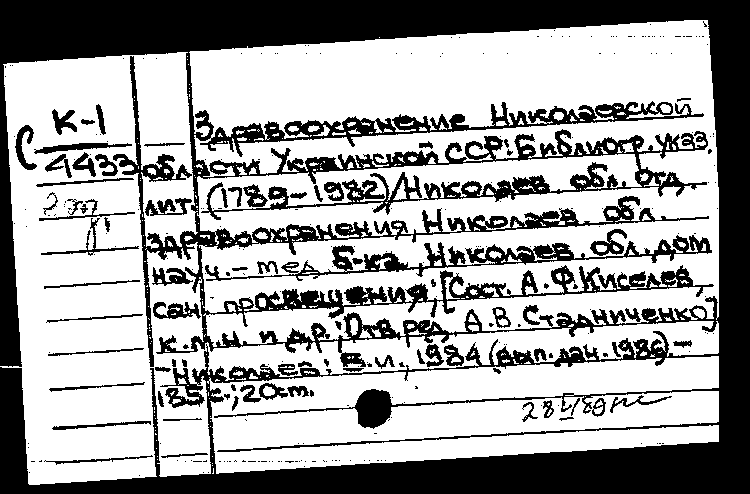 К-1
4433
Здравоохранение Николаевской
области Украинской ССР: Библиогр. указ.
лит. (1789-1982)/Николаев. обл. отд.
здравоохранения, Николаев. обл.
науч.-мед. б-ка, Николаев. обл. дом
сан. просвещения; [Сост. А.Ф. Киселев,
к.м.н. и др.; Отв. ред. А.В. Стадниченко]
-Николаев: Б.и., 1984 (вып. дан. 1986).-
185 с.; 20 см.